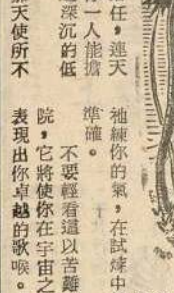 任，連天
一人能擔
深沉的低
天使所不
祂練你的氣，在試煒中
準確。
不要輕看這以苦難
院，它將使你在宇宙之
表現出你卓越的歌喉。